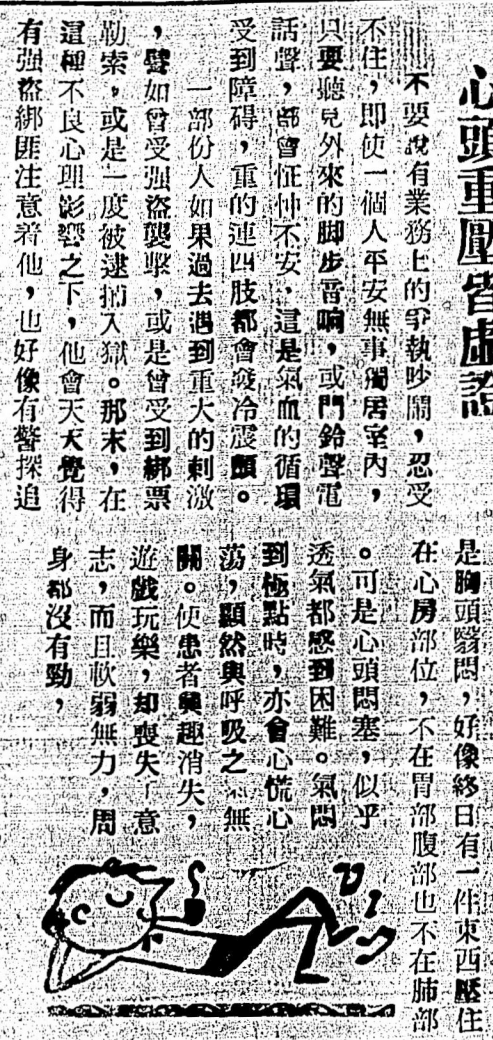 心頭重壓皆虛證
不要說有業務上的爭執吵鬧，忍受
不住，即使一個人平安無事獨居室內，
只要聽見外來的脚步音响，或門鈴聲電
話聲，都會怔忡不安，這是氣血的循環
受到障碍，重的連四肢都會發冷震顫。
一部份人如果過去遇到重大的刺激
，譬如曾受强盜襲擊，或是曾受到綁票
勒索，或是一度被逮捕入獄。那末，在
這種不良心理影響之下，他會天天覺得
有强盜綁匪注意着他，也好像有警探追
是胸頭翳悶，好像終日有一件東西壓住
在心房部位，不在胃部腹部也不在肺部
。可是心頭悶塞，似乎
透氣都感到困難。氣悶
到極點時，亦會心慌心
蕩，顯然與呼吸之無
關。使患者興趣消失，
遊戲玩樂，却喪失了意
志，而且軟弱無力，周
身都沒有勁，